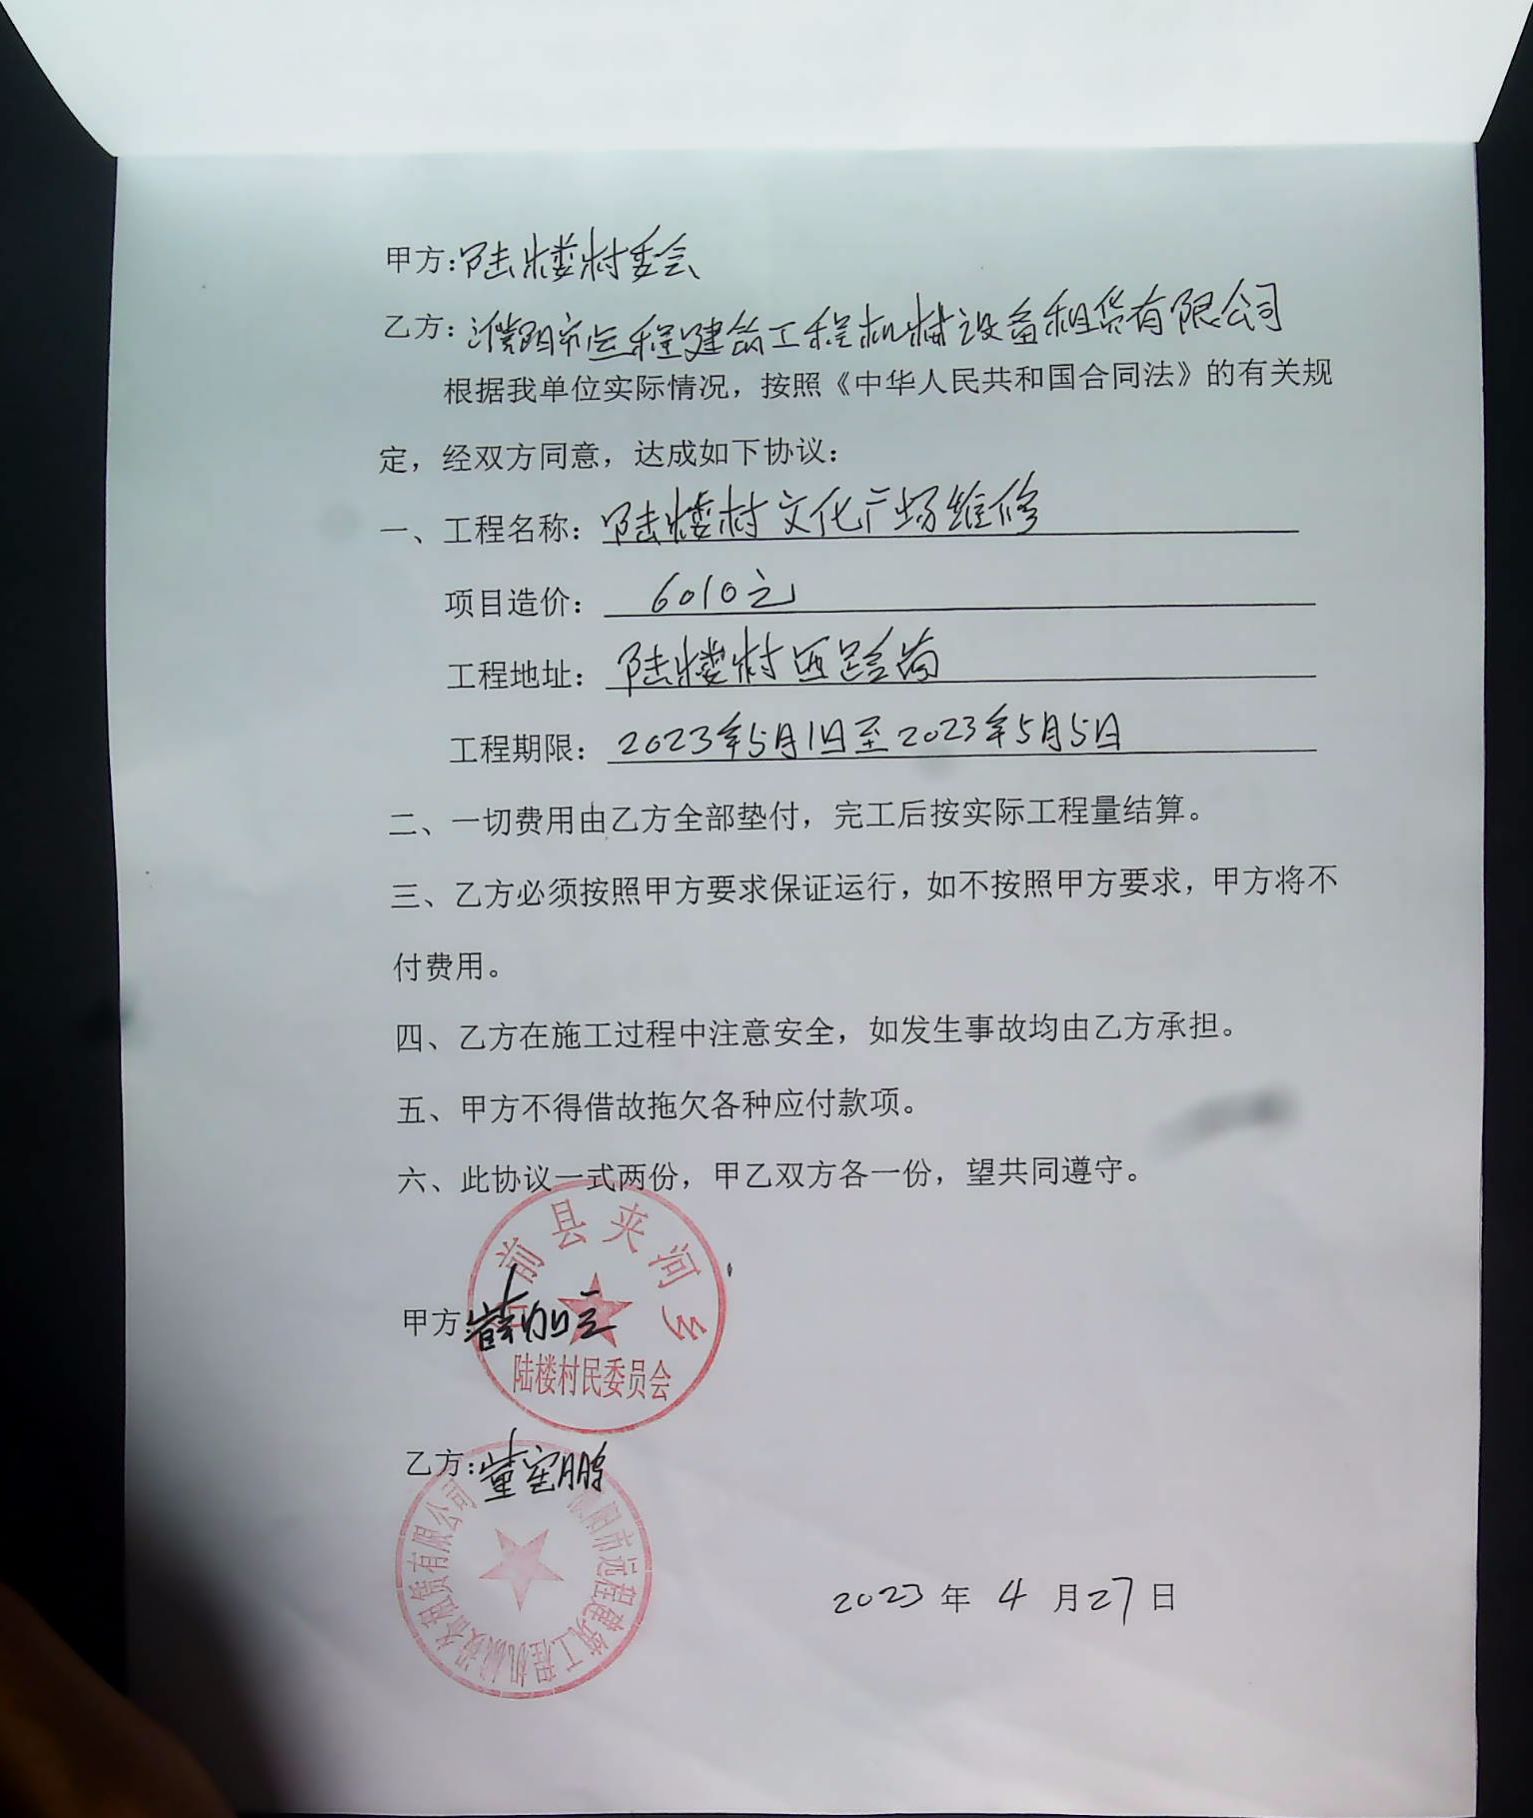 甲方:陆楼村委会
乙方:濮阳市远程建筑工程机械设备租赁有限公司
根据我单位实际情况，按照《中华人民共和国合同法》的有关规
定，经双方同意，达成如下协议：
一、工程名称：陆楼村文化广场维修
项目造价：6010元
工程地址：陆楼村西路南
工程期限：2023年5月1日至2023年5月5日
二、一切费用由乙方全部垫付，完工后按实际工程量结算。
三、乙方必须按照甲方要求保证运行，如不按照甲方要求，甲方将不
付费用。
四、乙方在施工过程中注意安全，如发生事故均由乙方承担。
五、甲方不得借故拖欠各种应付款项。
六、此协议一式两份，甲乙双方各一份，望共同遵守。
前县夹河乡
甲方:
陆楼村民委员会
乙方:
阳市远程建筑工程机械设备租赁有限公司
2023年4月27日